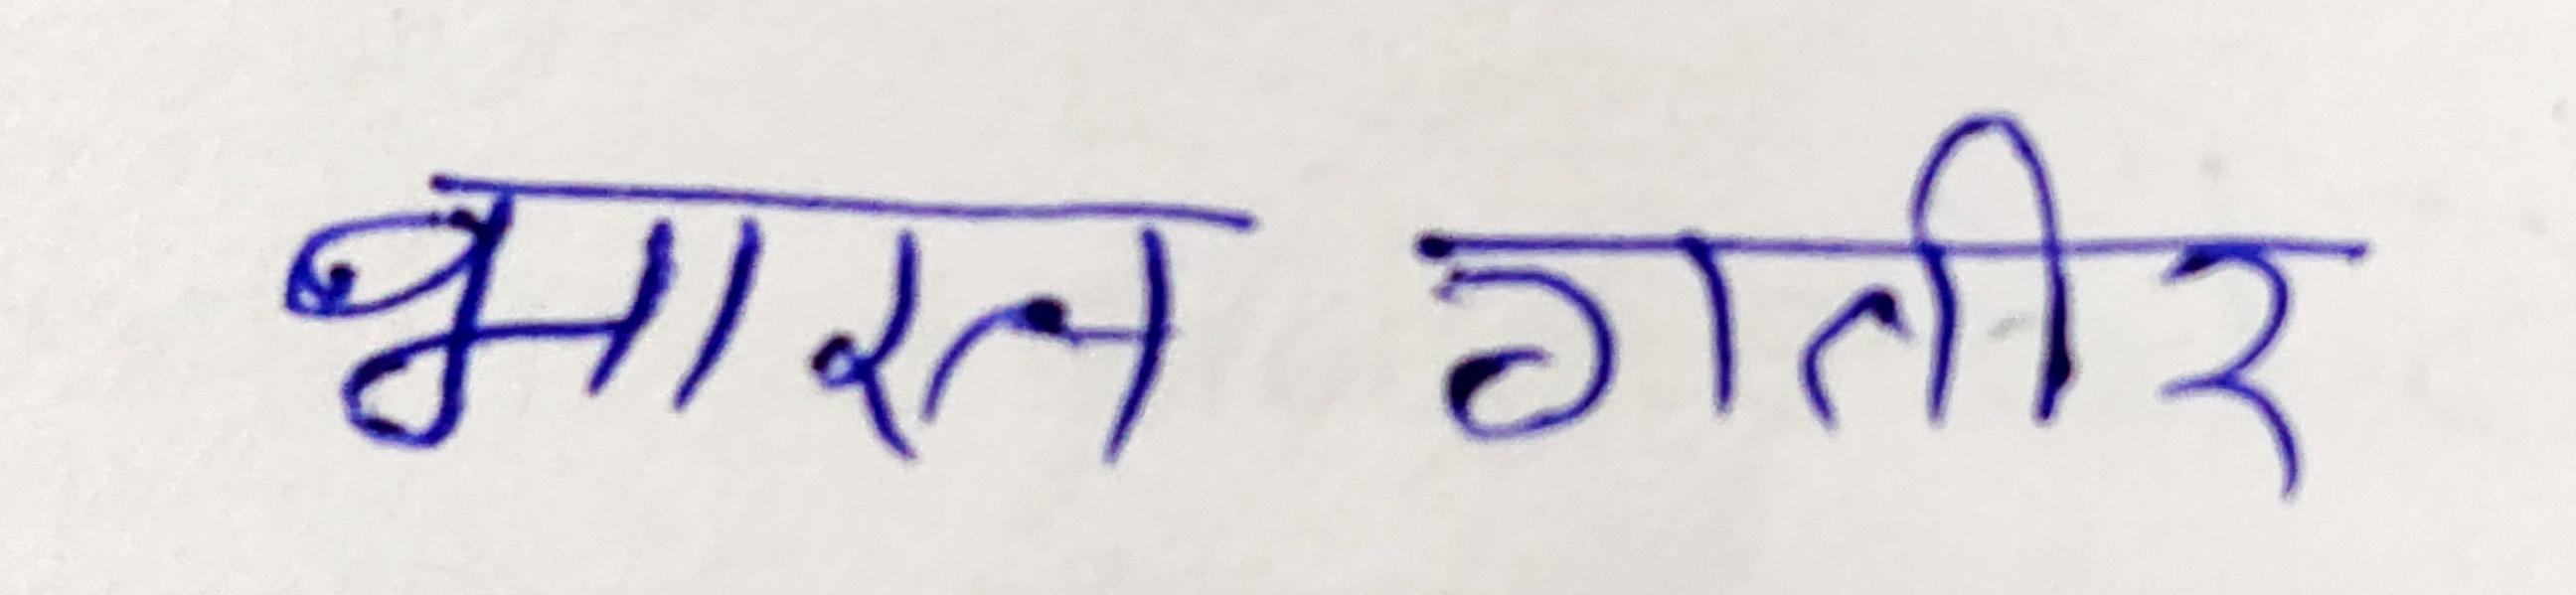 भारत गतीर